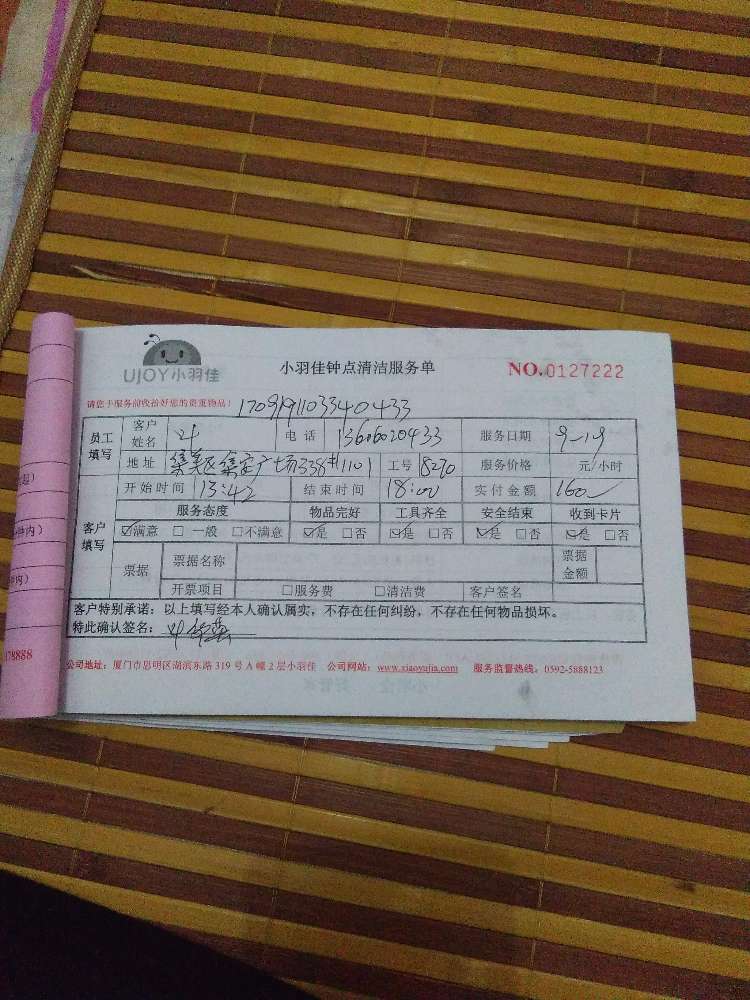 UJOY小羽佳
小羽佳钟点清洁服务单
NO.0127222
请您于服务前收拾好您的贵重物品！
170919103340433
员工填写 客户姓名 叶 电话 13606020433 服务日期 9-19
地址 集美区集安广场338#1101 工号 8270 服务价格 元/小时
开始时间 13:42 结束时间 18:00 实付金额 160
客户填写 服务态度 物品完好 工具齐全 安全结束 收到卡片
☑满意 □一般 □不满意 ☑是 □否 ☑是 □否 ☑是 □否 ☑是 □否
票据 票据名称 票据金额
开票项目 □服务费 □清洁费 客户签名
客户特别承诺：以上填写经本人确认属实，不存在任何纠纷，不存在任何物品损坏。
特此确认签名：
公司地址：厦门市思明区湖滨东路 319 号 A 幢 2 层小羽佳 公司网站：www.xiaoyujia.com 服务监督热线：0592-5888123
78888